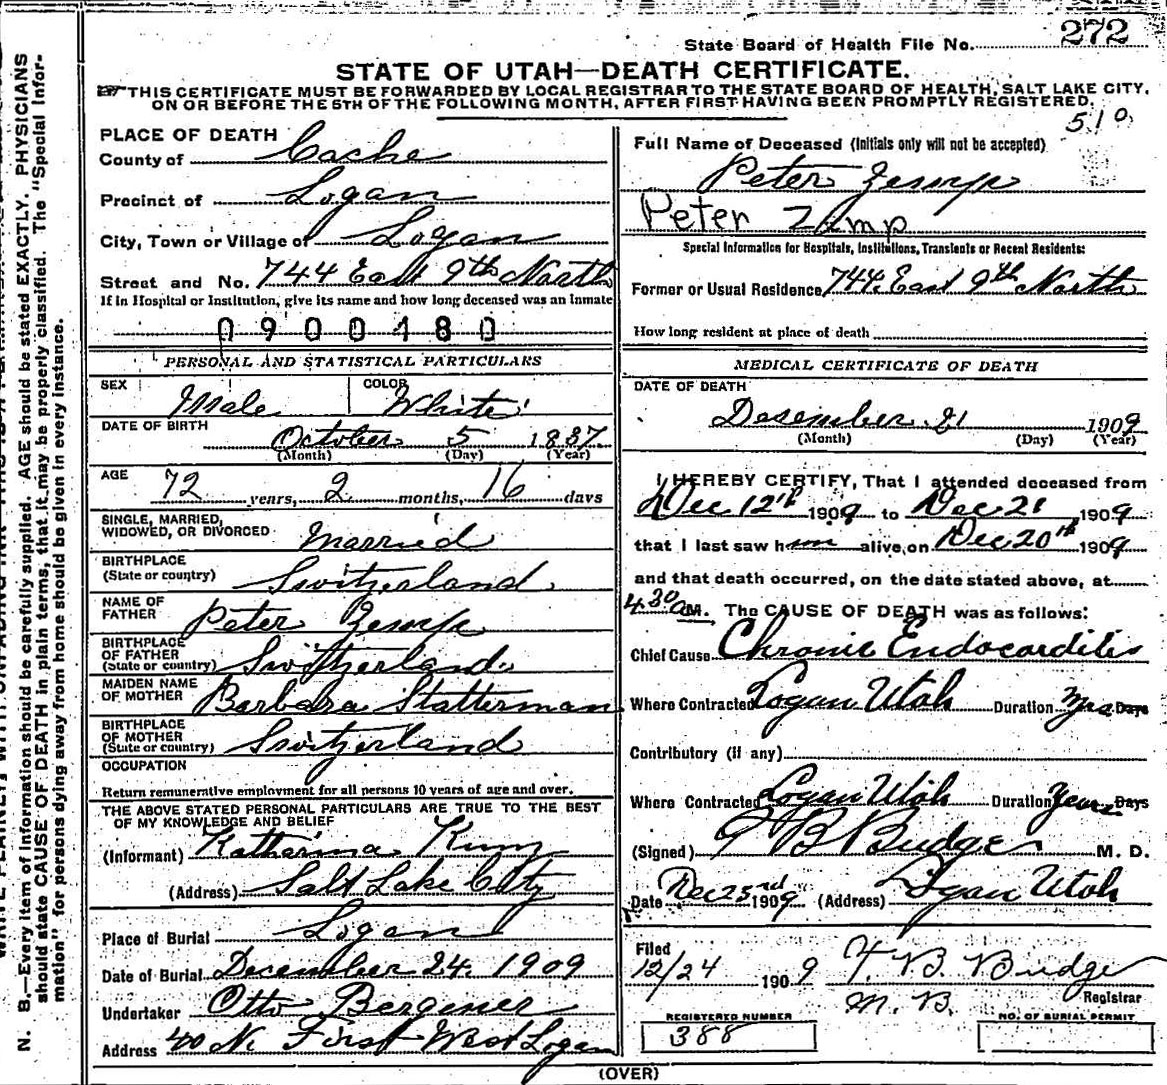 State Board of Health File No. 272
STATE OF UTAH—DEATH CERTIFICATE.
THIS CERTIFICATE MUST BE FORWARDED BY LOCAL REGISTRAR TO THE STATE BOARD OF HEALTH, SALT LAKE CITY,
ON OR BEFORE THE 5TH OF THE FOLLOWING MONTH, AFTER FIRST HAVING BEEN PROMPTLY REGISTERED.
510
PLACE OF DEATH
County of Cache
Precinct of Logan
City, Town or Village of Logan
Street and No. 744 East 9th North
If in Hospital or Institution, give its name and how long deceased was an inmate
0900480
PERSONAL AND STATISTICAL PARTICULARS
SEX Male COLOR White
DATE OF BIRTH October 5 1837
(Month) (Day) (Year)
AGE 72 years, 2 months, 16 days
SINGLE, MARRIED,
WIDOWED, OR DIVORCED Married
BIRTHPLACE
(State or country) Switzerland
NAME OF
FATHER Peter Zemp
BIRTHPLACE
OF FATHER
(State or country) Switzerland
MAIDEN NAME
OF MOTHER Barbara Statterman
BIRTHPLACE
OF MOTHER
(State or country) Switzerland
OCCUPATION
Return remunerative employment for all persons 10 years of age and over.
THE ABOVE STATED PERSONAL PARTICULARS ARE TRUE TO THE BEST
OF MY KNOWLEDGE AND BELIEF
(Informant) Katharina Kunz
(Address) Salt Lake City
Place of Burial Logan
Date of Burial December 24. 1909
Undertaker Otto Bergener
Address 40 N. First West Logan
Full Name of Deceased (Initials only will not be accepted)
Peter Zemp
Peter Zemp
Special Information for Hospitals, Institutions, Transients or Recent Residents:
Former or Usual Residence 744 East 9th North
How long resident at place of death
MEDICAL CERTIFICATE OF DEATH
DATE OF DEATH
Desember 21 1909
(Month) (Day) (Year)
I HEREBY CERTIFY, That I attended deceased from
Dec 12th 1909 to Dec 21 1909
that I last saw him alive, on Dec 20th 1909
and that death occurred, on the date stated above, at
4 30 a M. The CAUSE OF DEATH was as follows:
Chief Cause Chronic Endocarditis
Where Contracted Logan Utah Duration Yrs Days
Contributory (if any)
Where Contracted Logan Utah Duration Years Days
(Signed) B Budge M. D.
Date Dec 23rd 1909 (Address) Logan Utah
Filed
12/24 1909 T. B. Budge
M. D. Registrar
REGISTERED NUMBER
388
NO. OF BURIAL PERMIT
(OVER)
N. B.—Every item of information should be carefully supplied. AGE should be stated EXACTLY. PHYSICIANS
should state CAUSE OF DEATH in plain terms, that it may be properly classified. The "Special Infor-
mation" for persons dying away from home should be given in every instance.